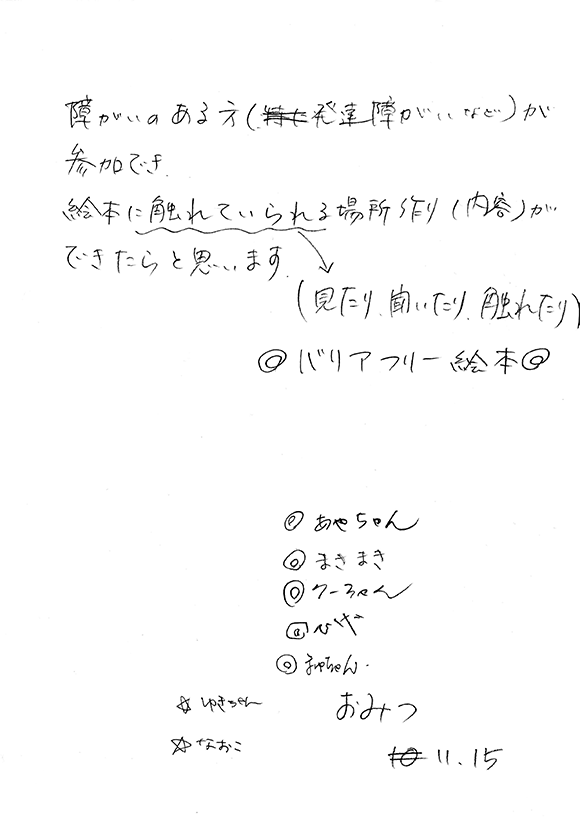 障がいのある方(発達障がいなど)が
参加でき、
絵本に触れていられる場所作り(内容)が
できたらと思います。
(見たり、聞いたり、触れたり)
◎バリアフリー絵本◎
◎あやちゃん
◎まきまき
◎クーちゃん
ひげ
◎
☆ゆきちゃん
おみつ
☆なおこ
11.15